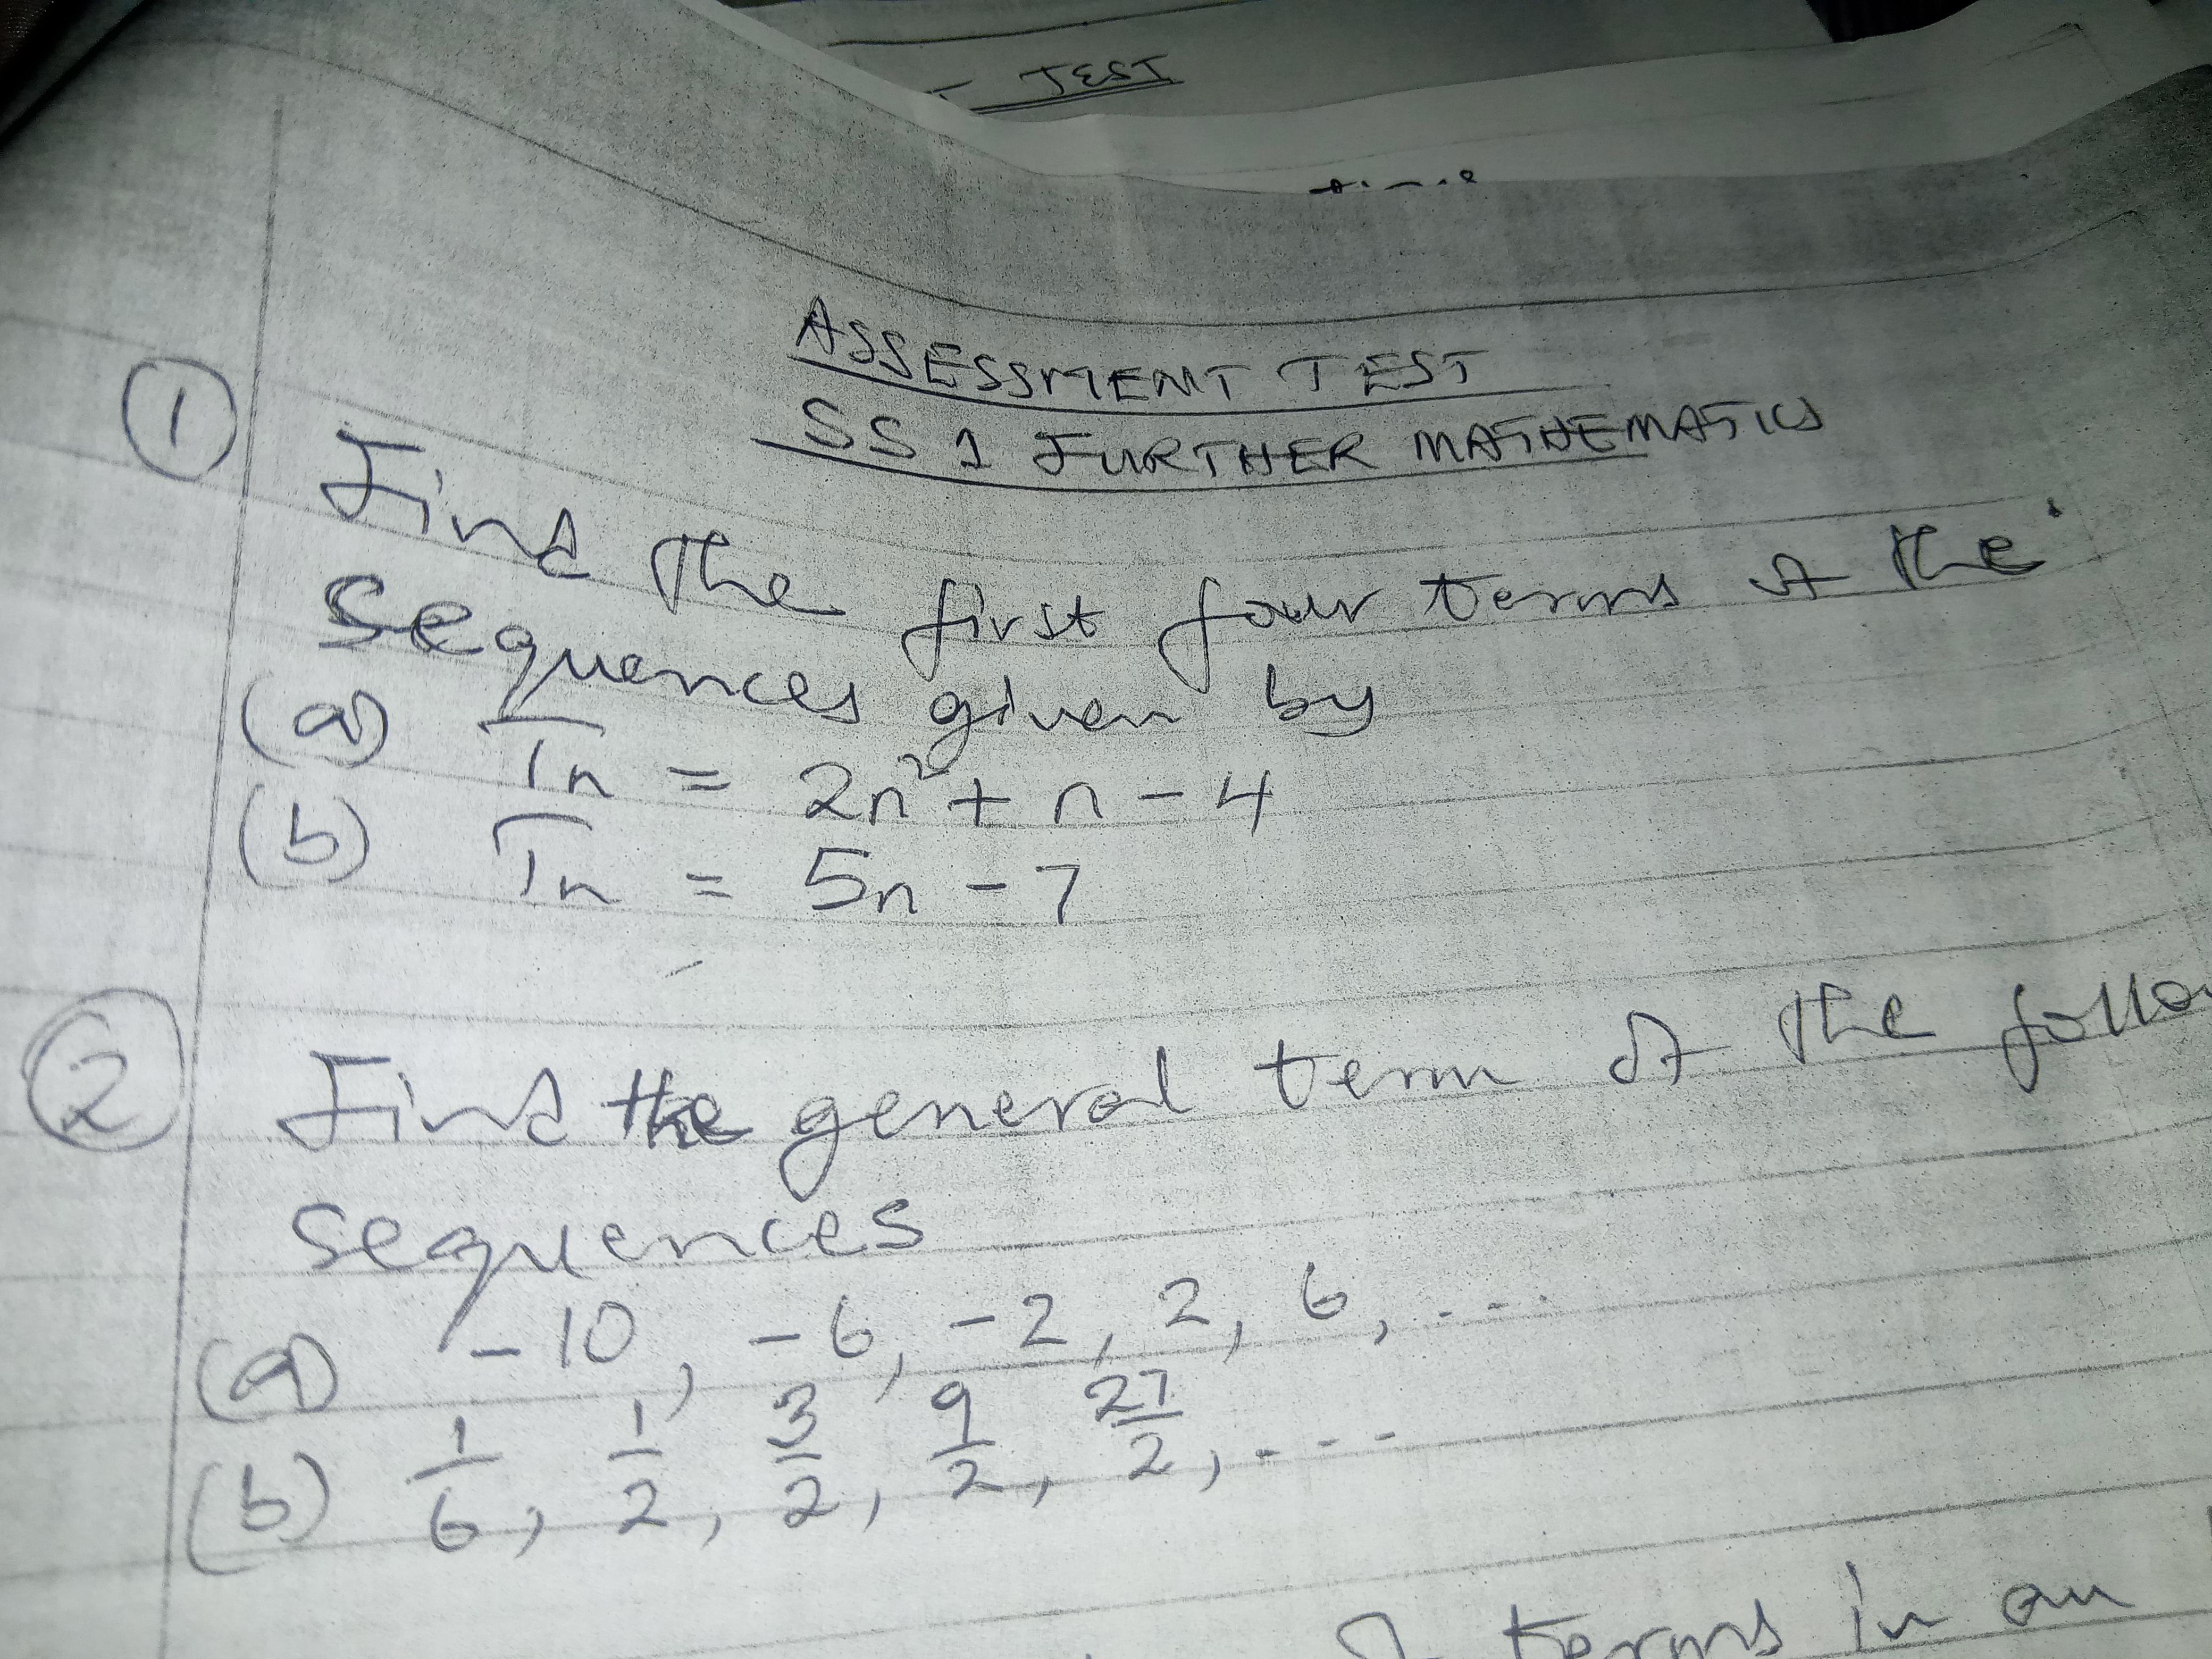 TEST
ASSESSMENT TEST
SS 1 FURTHER MATHEMATICS
① Find the first four terms of the
sequences given by
(a) Tn = 2n² + n - 4
(b) Tn = 5n - 7
② Find the general term of the follo
sequences
(a) -10, -6, -2, 2, 6, ....
(b) 1/6, 1/2, 3/2, 9/2, 27/2, ....
terms in an